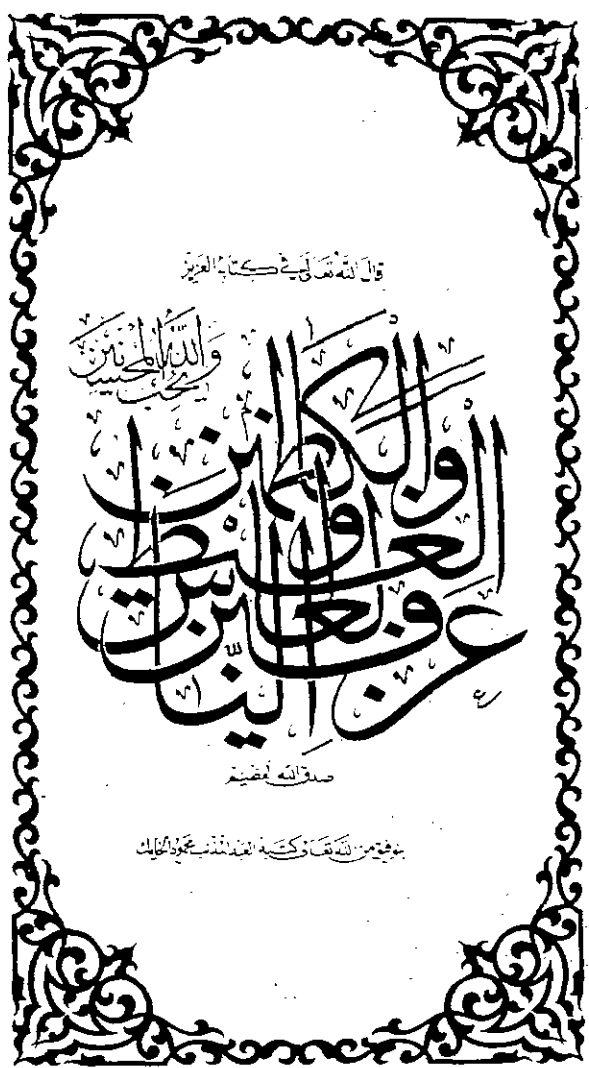 قال الله تعالى في كتابه العزيز
والكاظمين الغيظ والعافين عن الناس
والله يحب المحسنين
صدق الله العظيم
بتوفيق من الله تعالى وكتبه العبد المذنب محمود